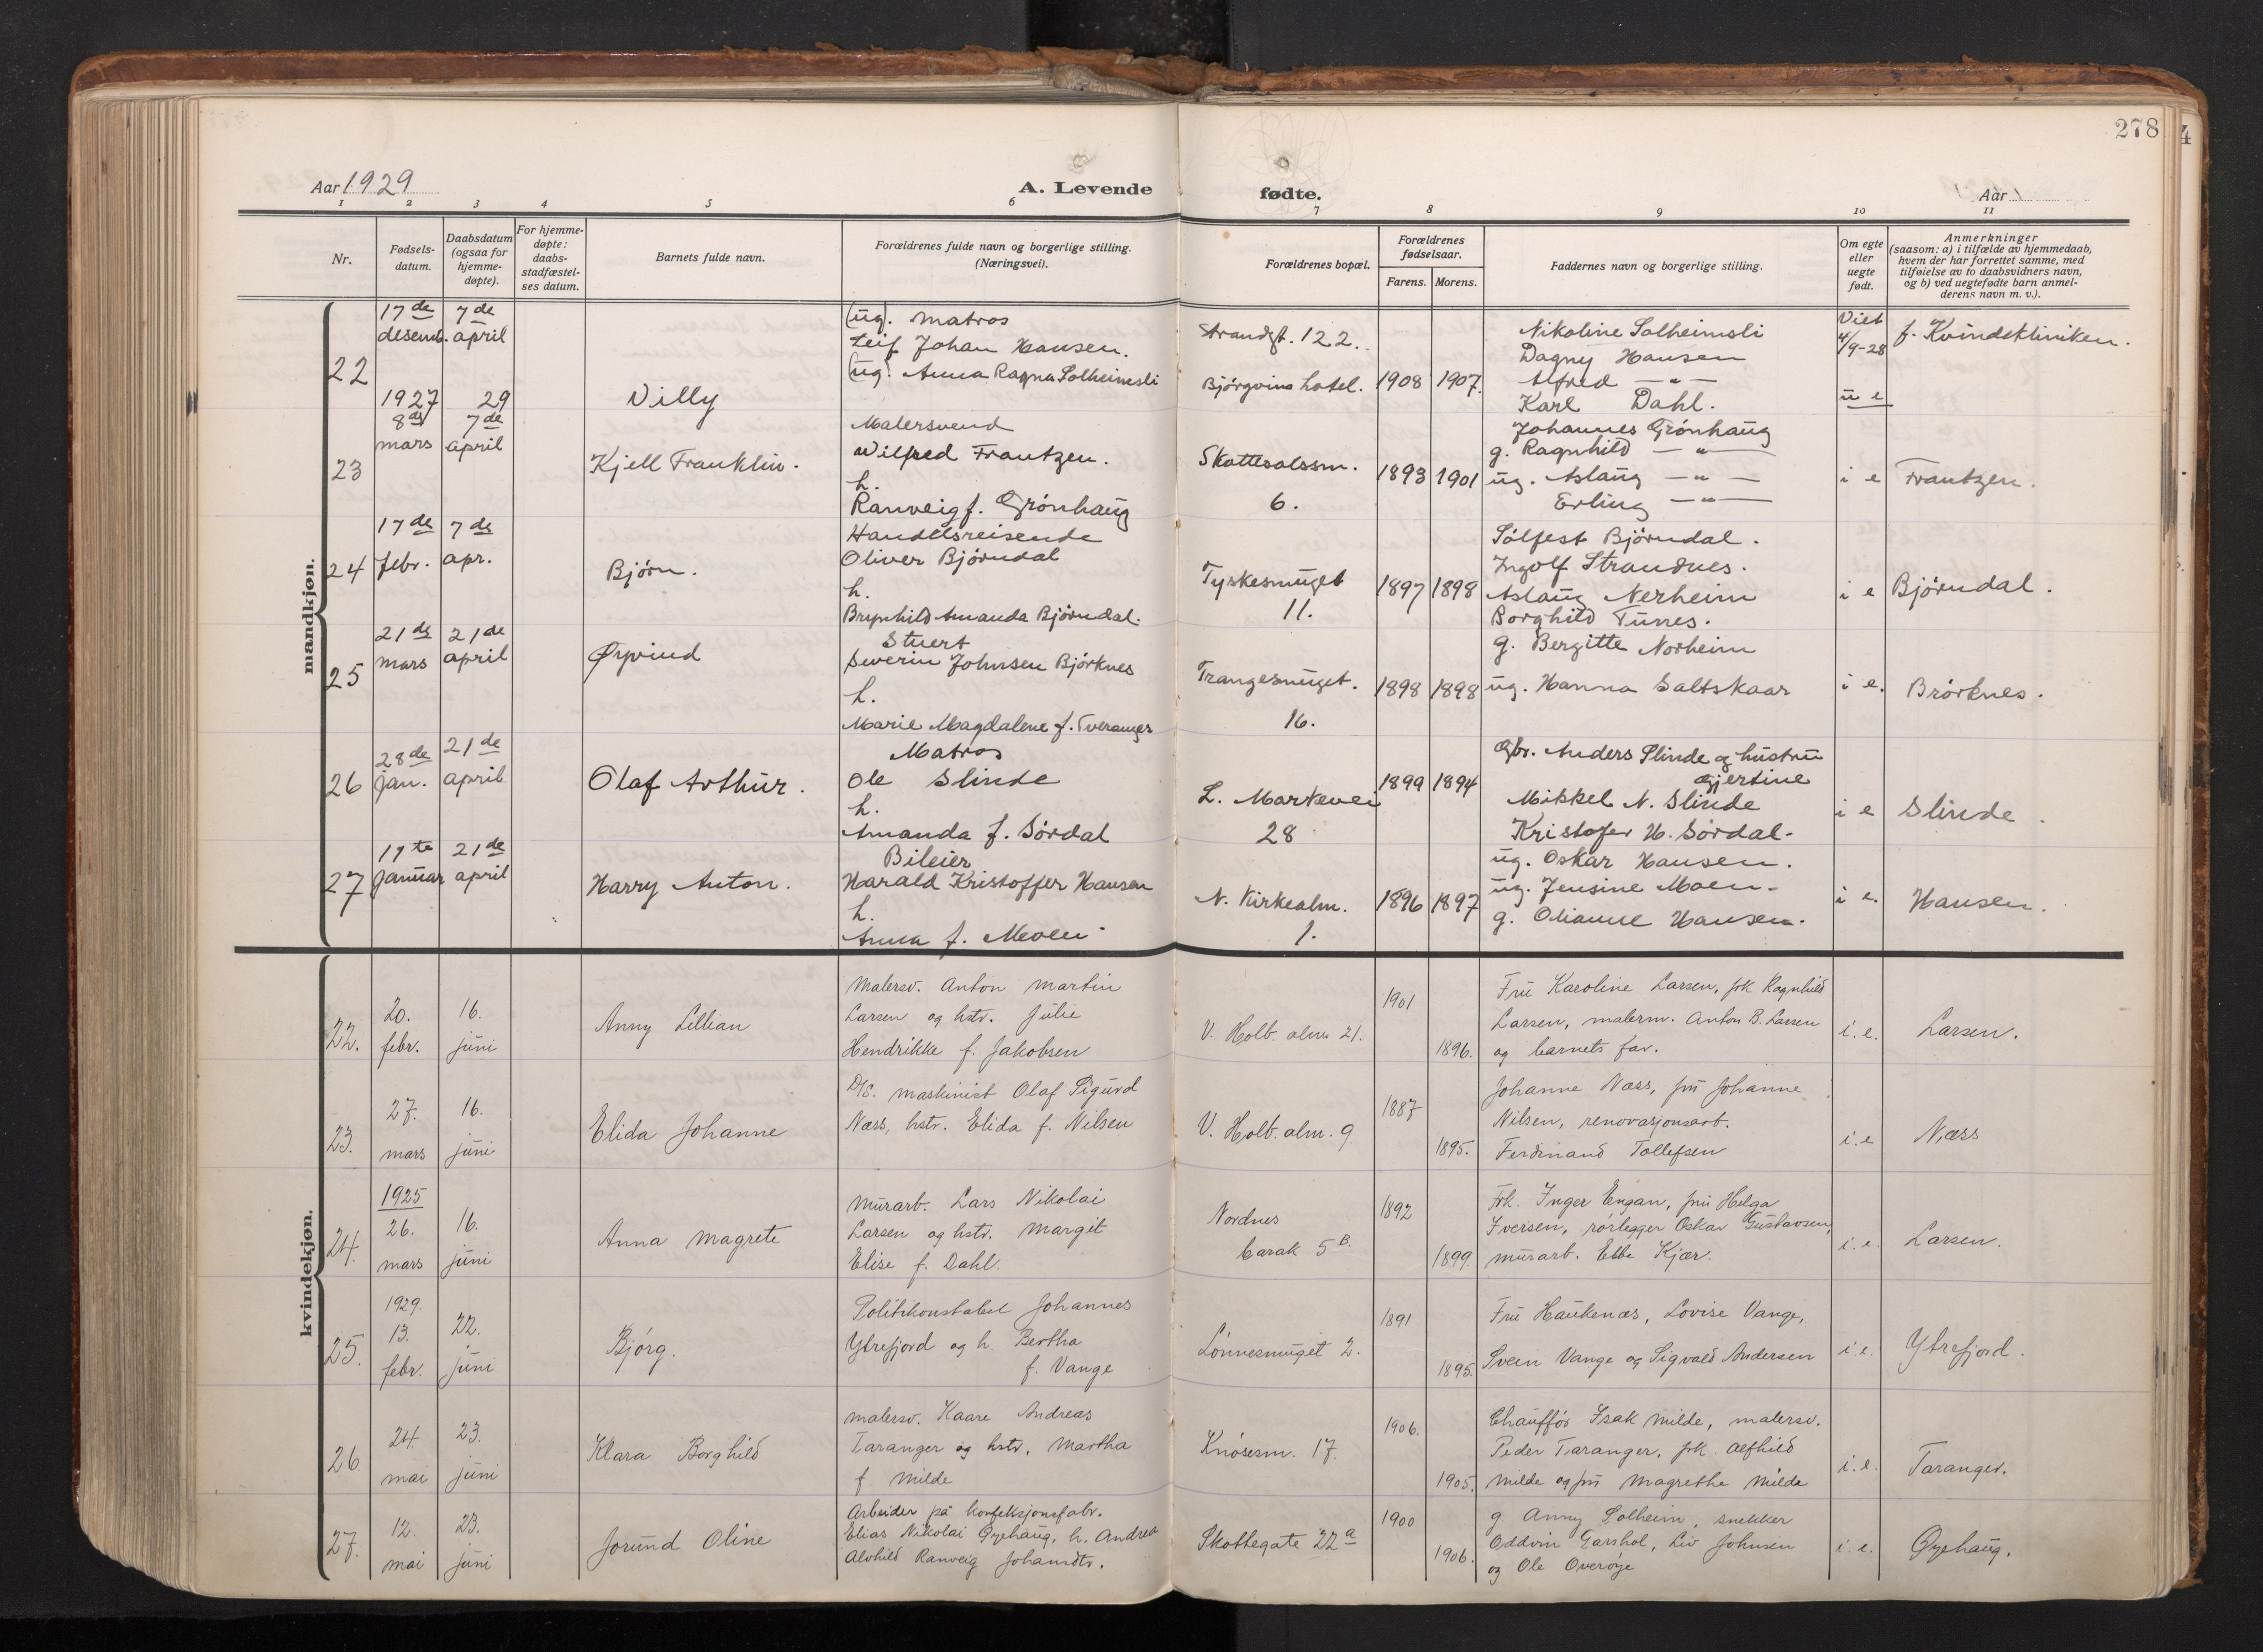 278
Aar 1929
A. Levende
fødte.
Aar
1 2 3 4 5 6 7 8 9 10 11
Nr.
Fødsels-
datum.
Daabsdatum
(ogsaa for
hjemme-
døpte).
For hjemme-
døpte:
daabs-
stadfæstel-
ses datum.
Barnets fulde navn.
Forældrenes fulde navn og borgerlige stilling.
(Næringsvei).
Forældrenes bopæl.
Forældrenes
fødselsaar.
Farens. Morens.
Faddernes navn og borgerlige stilling.
Om egte
eller
uegte
født.
Anmerkninger
(saasom: a) i tilfælde av hjemmedaab,
hvem der har forrettet samme, med
tilføielse av to daabsvidners navn,
og b) ved uegtefødte barn anmel-
derens navn m. v.).
mandkjøn.
22
17de
desemb.
1927
7de
april
29
Willy
(ug). Matros
Leif Johan Hansen.
(ug). Anna Ragna Solheimsli
Strandgt. 122.
Bjørgvins hotel.
1908 1907.
Nikoline Solheimsli
Dagny Hansen
Alfred — " —
Karl Dahl.
Viet
4/9-28
u e
f. Kvindekliniken.
23
8de
mars
7de
april
Kjell Franklin.
Malersvend
Wilfred Frantzen.
h.
Ranveig f. Grønhaug
Skottesalssm.
6.
1893 1901
Johannes Grønhaug
g. Ragnhild — " —
ug. Aslaug — " —
Erling — " —
i e
Frantzen.
24
17de
febr.
7de
apr.
Bjørn.
Handelsreisende
Oliver Bjørndal
h.
Brynhild Amanda Bjørndal.
Tyskesmuget
11.
1897 1898
Sølfest Bjørndal.
Ingolf Strandnes.
Aslaug Nerheim
Borghild Tunes.
i e
Bjørndal.
25
21de
mars
21de
april
Øyvind
Stuert
Severin Johnsen Bjørknes
h.
Marie Magdalene f. Tveranger
Trangesmuget.
16.
1898 1898
g. Bergitte Norheim
ug. Hanna Saltskaar
i e.
Brørknes.
26
28de
jan.
21de
april
Olaf Arthur.
Matros
Ole Slinde
h.
Amanda f. Sørdal
L. Markevei
28
1899 1894
Gbr. Anders Slinde og hustru
Gjertine
Mikkel N. Slinde
Kristofer H. Sørdal.
i e
Slinde.
27
17te
januar
21de
april
Harry Anton.
Bileier
Harald Kristoffer Hansen
h.
Anna f. Moen
N. Kirkealm.
1.
1896 1897
ug. Oskar Hansen.
ug. Jensine Moen.
g. Olianne Hansen.
i e.
Hansen.
kvindekjøn.
22.
20.
febr.
16.
juni
Anny Lillian
Malersv. Anton Martin
Larsen og hstr. Julie
Hendrikke f. Jakobsen
V. Holb. alm 21.
1901
1896.
Fru Karoline Larsen, frk Ragnhild
Larsen, malerm. Anton B. Larsen
og barnets far.
i. e.
Larsen.
23.
27.
mars
16.
juni
Elida Johanne
D/S. maskinist Olaf Sigurd
Næss, hstr. Elida f. Nilsen
V. Holb. alm. 9
1887
1895.
Johanne Næss, fru Johanne
Nilsen, renovasjonsarb.
Ferdinand Tollefsen
i. e
Næss
24.
1925
26.
mars
16.
juni
Anna Magrete
Murarb. Lars Nikolai
Larsen og hstr. Margit
Elise f. Dahl.
Nordnes
barak 5 B.
1892
1899.
Frk. Inger Engan, fru Helga
Iversen, rørlegger Oskar Gustavsen,
murarb. Ebbe Kjær.
i. e.
Larsen.
25.
1929.
13.
febr.
22.
juni
Bjørg.
Politikonstabel Johannes
Ytrefjord og h. Bertha
f. Vange
Lønnesmuget 2.
1891
1895.
Fru Haukenæs, Lovise Vange,
Svein Vange og Sigvald Andersen
i. e.
Ytrefjord.
26
24.
mai
23.
juni
Klara Borghild
malersv. Kaare Andreas
Taranger og hstr. Martha
f. Milde
Knøsesm. 17.
1906.
1905.
Chauffør Isak Milde, malersv.
Peder Taranger, frk. Alfhild
Milde og fru Magrethe Milde
i. e.
Taranger.
27.
12.
mai
23.
juni
Jorund Oline
Arbeider på konfeksjonsfabr.
Elias Nikolai Øyehaug, h. Andrea
Alvhild Ranveig Johansdtr.
Skottegate 22a
1900
1906.
g. Anny Solheim, snekker
Oddvin Garshol, Liv Johnsen
og Ole Overøye
i. e.
Øyehaug.